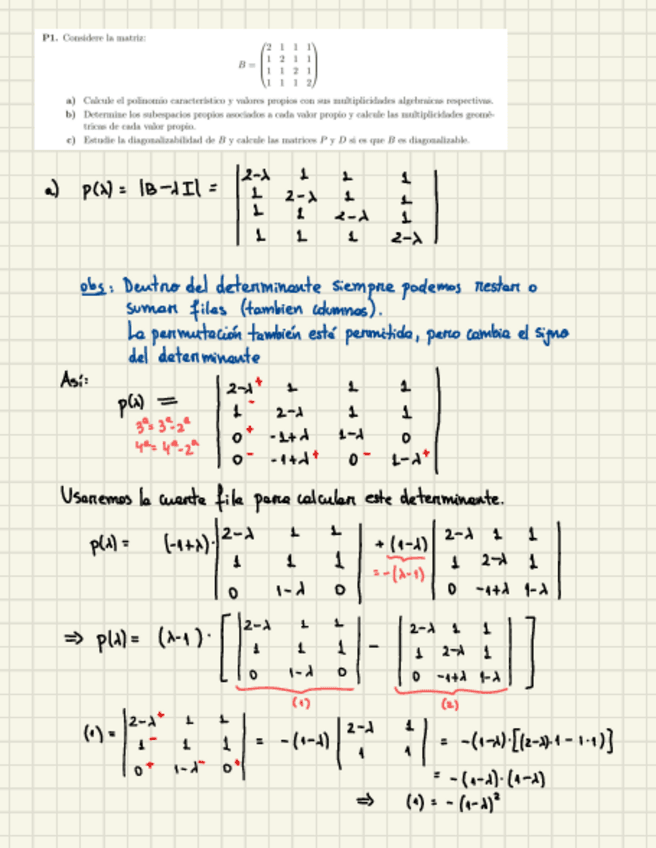 P1. Considere la matriz:
B = (2 1 1 1
1 2 1 1
1 1 2 1
1 1 1 2)
a) Calcule el polinomio característico y valores propios con sus multiplicidades algebraicas respectivas.
b) Determine los subespacios propios asociados a cada valor propio y calcule las multiplicidades geomé-
tricas de cada valor propio.
c) Estudie la diagonalizabilidad de B y calcule las matrices P y D si es que B es diagonalizable.
a) p(λ) = |B-λI| = |2-λ 1 1 1|
|1 2-λ 1 1|
|1 1 2-λ 1|
|1 1 1 2-λ|
obs: Dentro del determinante siempre podemos restar o
sumar filas (tambien columnas).
La permutación también está permitida, pero cambia el signo
del determinante
Así:
p(λ) = |2-λ⁺ 1 1 1|
|1⁻ 2-λ 1 1|
3ª = 3ª-2ª |0⁺ -1+λ 1-λ 0|
4ª = 4ª-2ª |0⁻ -1+λ⁺ 0⁻ 1-λ⁺|
Usaremos la cuarta fila para calcular este determinante.
p(λ) = (-1+λ)· |2-λ 1 1| + (1-λ) |2-λ 1 1|
|1 1 1| = -(λ-1) |1 2-λ 1|
|0 1-λ 0| |0 -1+λ 1-λ|
⇒ p(λ) = (λ-1) · [ |2-λ 1 1| - |2-λ 1 1| ]
|1 1 1| |1 2-λ 1|
|0 1-λ 0| |0 -1+λ 1-λ|
(1) (2)
(1) = |2-λ⁺ 1 1| = -(1-λ) |2-λ 1| = -(1-λ)·[(2-λ)·1 - 1·1)]
|1⁻ 1 1| |1 1|
|0⁺ 1-λ⁻ 0⁺| = -(1-λ)·(1-λ)
⇒ (1) = -(1-λ)²